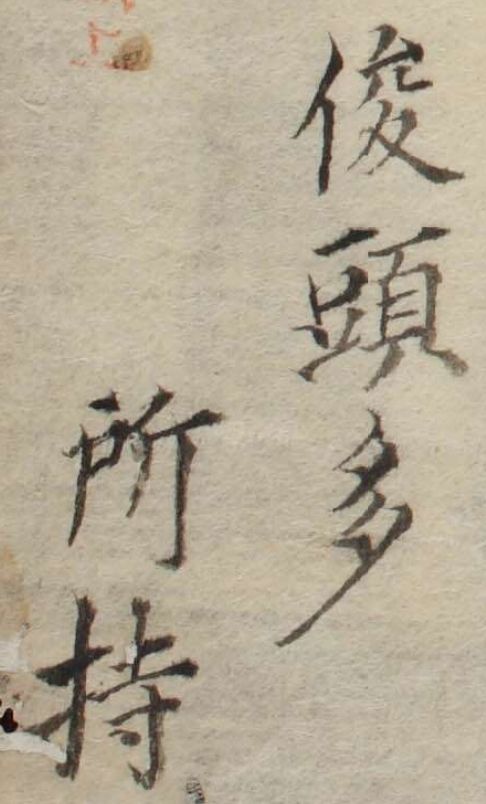 俊頭多
所持